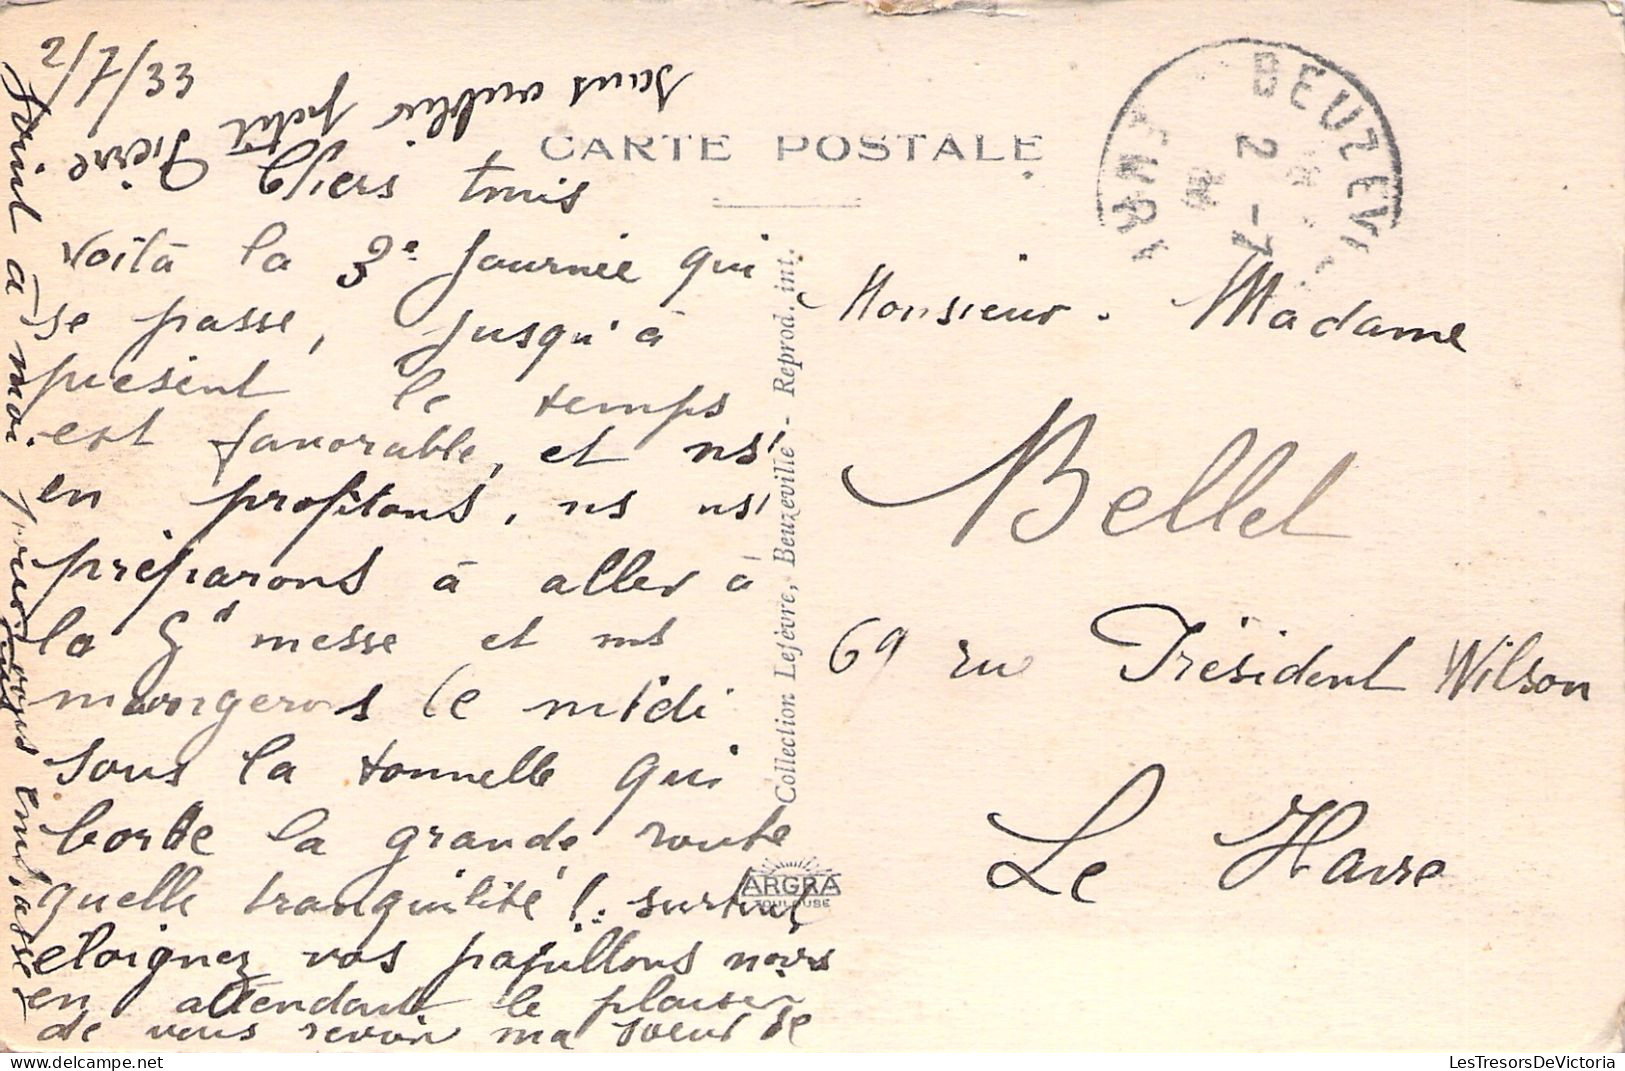 2/7/33
CARTE POSTALE
Chers tous
voilà la 3e journée qui
se passe, jusqu'à
présent le temps
est favorable, et ns
en profitons, ns ns
préparons à aller à
la Gd messe et ns
mangerons le midi
sous la tonnelle qui
borde la grande route
quelle tranquilité ! surtout
eloignez vos papillons noirs
en attendant le plaisir
de vous revoir ma soeur se
joint à moi pour vous embrasser
sans oublier petit
Pierre
Collection Lefèvre, Beuzeville - Reprod. int.
ARGRA
TOULOUSE
BEUZEV
2 -7
Monsieur . Madame
Bellet
69 rue Président Wilson
Le Havre
LesTresorsDeVictoria